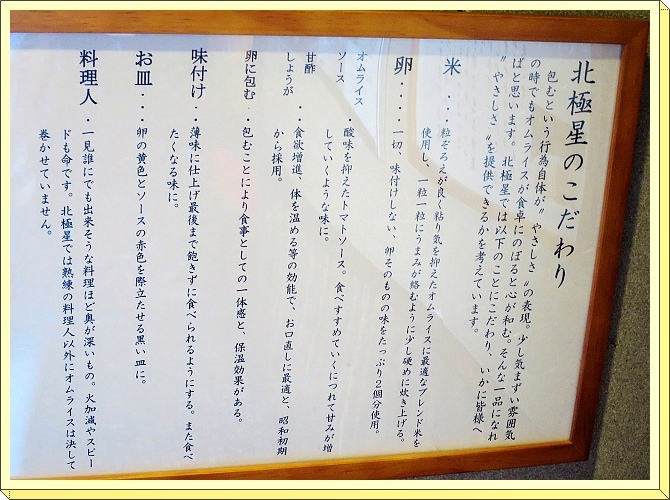 北極星のこだわり
包むという行為自体が〝やさしさ〟の表現。少し気まずい雰囲気
の時でもオムライスが食卓にのぼると心が和む。そんな一品になれ
ばと思います。北極星では以下のことにこだわり、いかに皆様へ
〝やさしさ〟を提供できるかを考えています。
米・・・粒ぞろえが良く粘り気を抑えたオムライスに最適なブレンド米を
使用し、一粒一粒にうまみが絡むように少し硬めに炊き上げる。
卵・・・・一切、味付けしない、卵そのものの味をたっぷり2個分使用。
オムライス
ソース・酸味を抑えたトマトソース。食べすすめていくにつれて甘みが増
していくような味に。
甘酢
しょうが・・食欲増進、体を温める等の効能で、お口直しに最適と、昭和初期
から採用。
卵に包む・・包むことにより食事としての一体感と、保温効果がある。
味付け・・薄味に仕上げ最後まで飽きずに食べられるようにする。また食べ
たくなる味に。
お皿・・・卵の黄色とソースの赤色を際立たせる黒い皿に。
料理人・一見誰にでも出来そうな料理ほど奥が深いもの。火加減やスピー
ドも命です。北極星では熟練の料理人以外にオムライスは決して
巻かせていません。